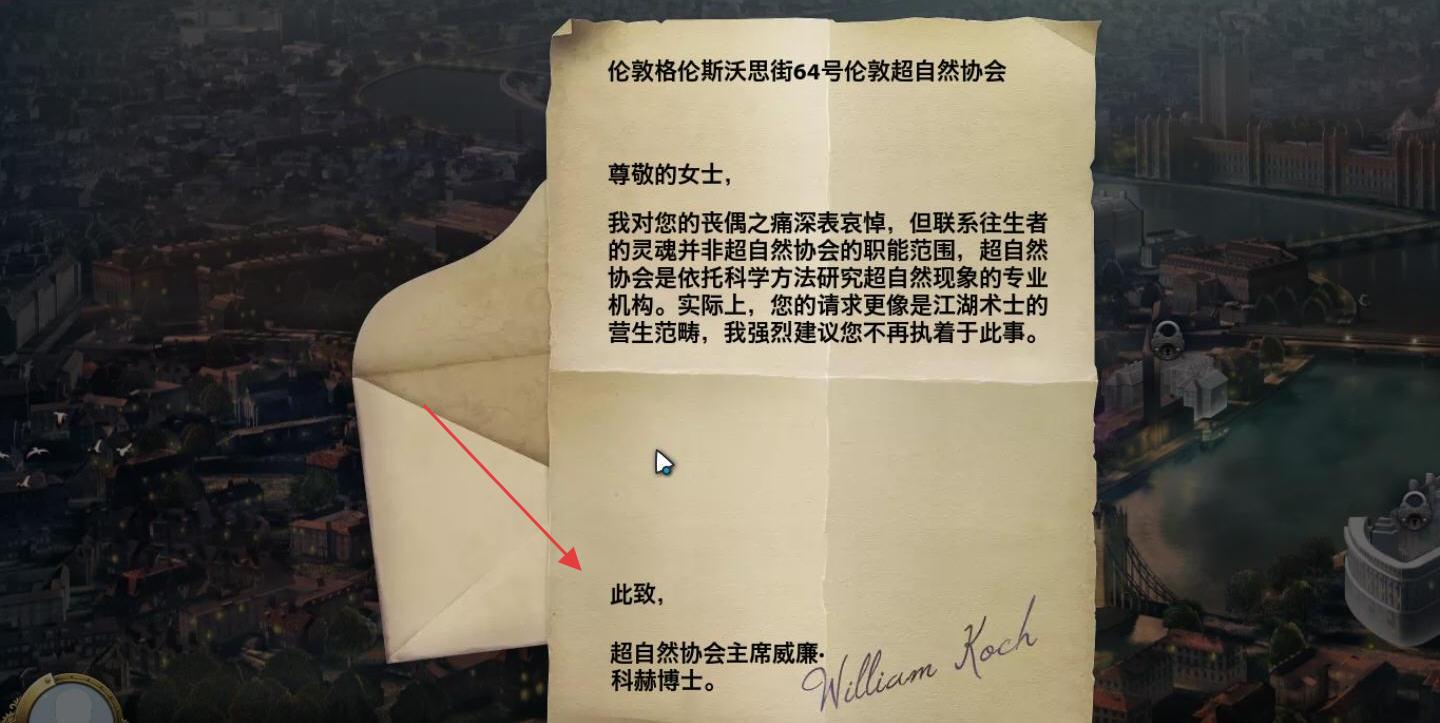 伦敦格伦斯沃思街64号伦敦超自然协会
尊敬的女士，
我对您的丧偶之痛深表哀悼，但联系往生者
的灵魂并非超自然协会的职能范围，超自然
协会是依托科学方法研究超自然现象的专业
机构。实际上，您的请求更像是江湖术士的
营生范畴，我强烈建议您不再执着于此事。
此致，
超自然协会主席威廉·
科赫博士。
William Koch